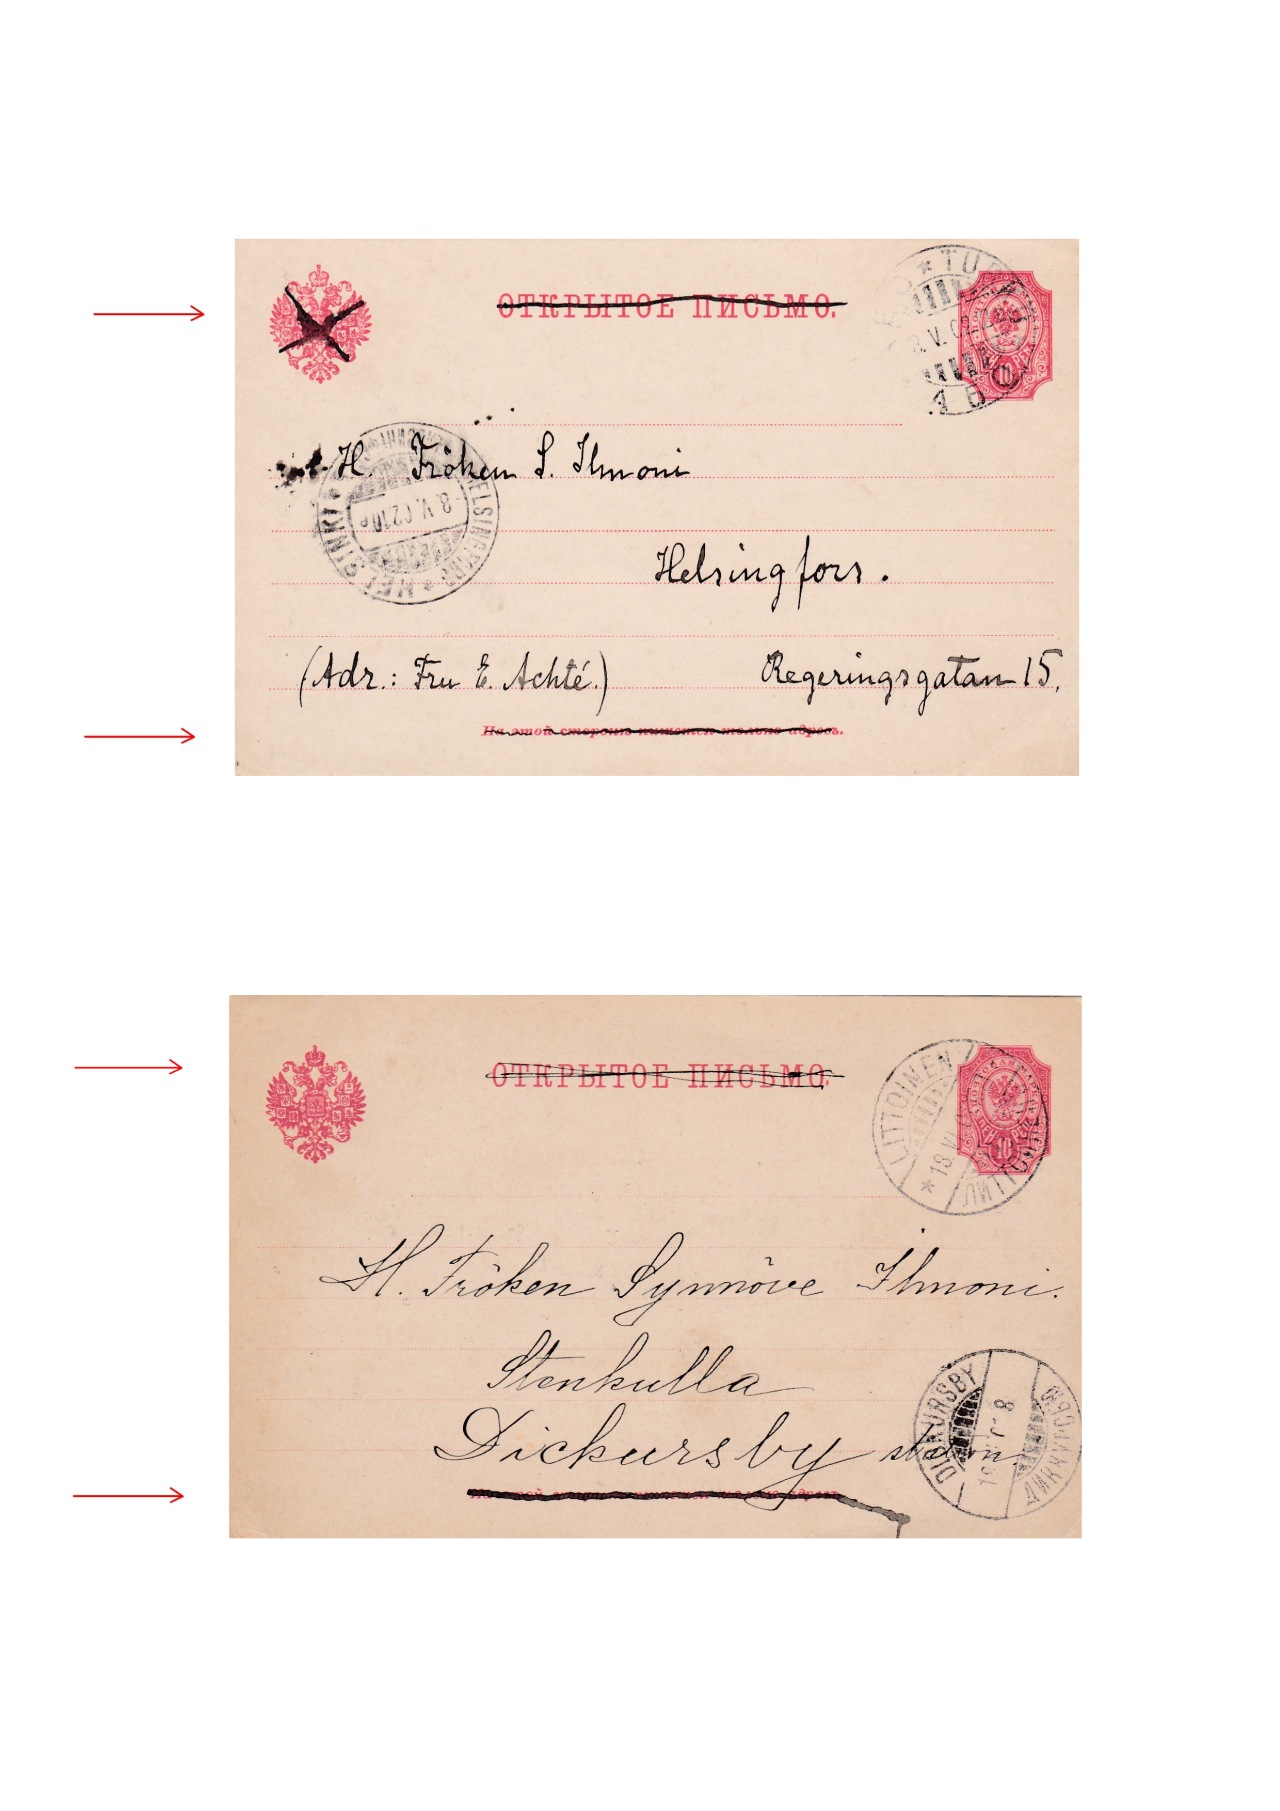 ОТКРЫТОЕ ПИСЬМО.
8.V.02
10
H. Fröken S. Ilmoni
HELSINKI * HELSINGFORS
8.V.02 10e
Helsingfors.
(Adr.: Fru E. Achté.) Regeringsgatan 15.
На этой сторонѣ пишется только адресъ.
ОТКРЫТОЕ ПИСЬМО.
LITTOINEN
10
H. Fröken Synnöve Ilmoni.
Stenkulla
Dickursby station.
DICKURSBY
ДИККУРСБЮ
На этой сторонѣ пишется только адресъ.